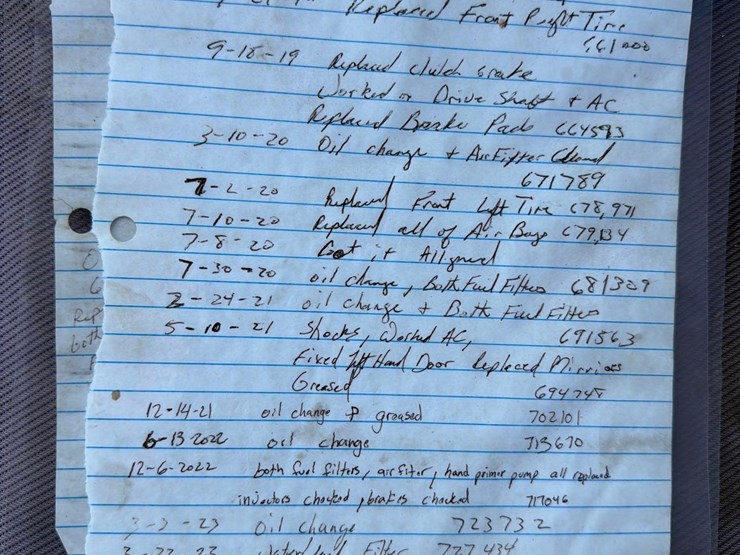 Replaced Front Right Tire
661000
9-18-19 Replaced clutch brake
Worked on Drive Shaft + AC
Replaced Brake Pads 664593
3-10-20 Oil change + Air Filter Cleaned
671789
7-2-20 Replaced Front Left Tire 678,971
7-10-20 Replaced all of Air Bags 679,134
7-8-20 Got it Aligned
7-30-20 oil change, Both Fuel Filters 681327
2-24-21 oil change & Both Fuel Filters
5-10-21 Shocks, Worked AC, 691563
Fixed Left Hand Door Replaced Mirriors
Greased 694748
12-14-21 oil change & greased 702101
6-13-2022 oil change 713670
12-6-2022 both fuel filters, air fiter, hand primer pump all replaced
injectors checked, brakes checked 717046
3-3-23 oil change 723732
Filter 727434